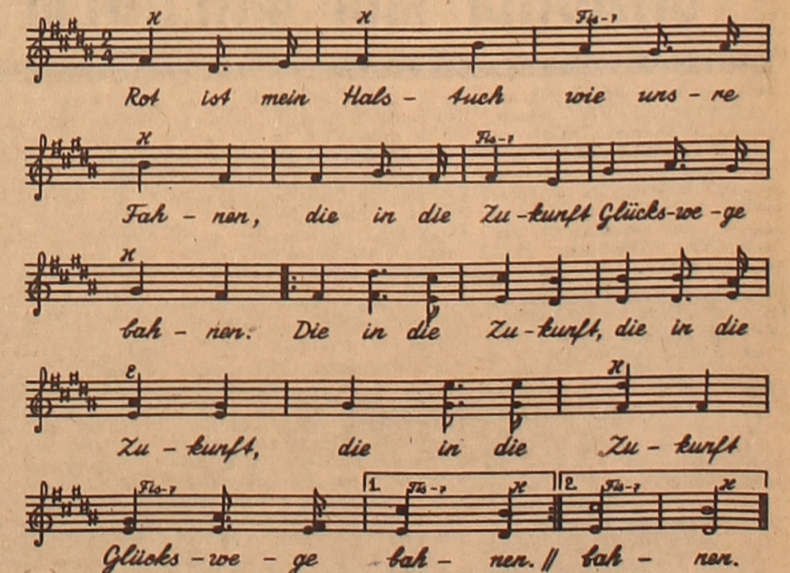 H H Fis-7
2
4
Rot ist mein Hals - tuch wie uns - re
H Fis-7
Fah - nen, die in die Zu - kunft Glücks-we - ge
H
bah - nen: Die in die Zu - kunft, die in die
E H
Zu - kunft, die in die Zu - kunft
Fis-7 1. Fis-7 H 2. Fis-7 H
Glücks - we - ge bah - nen. // bah - nen.